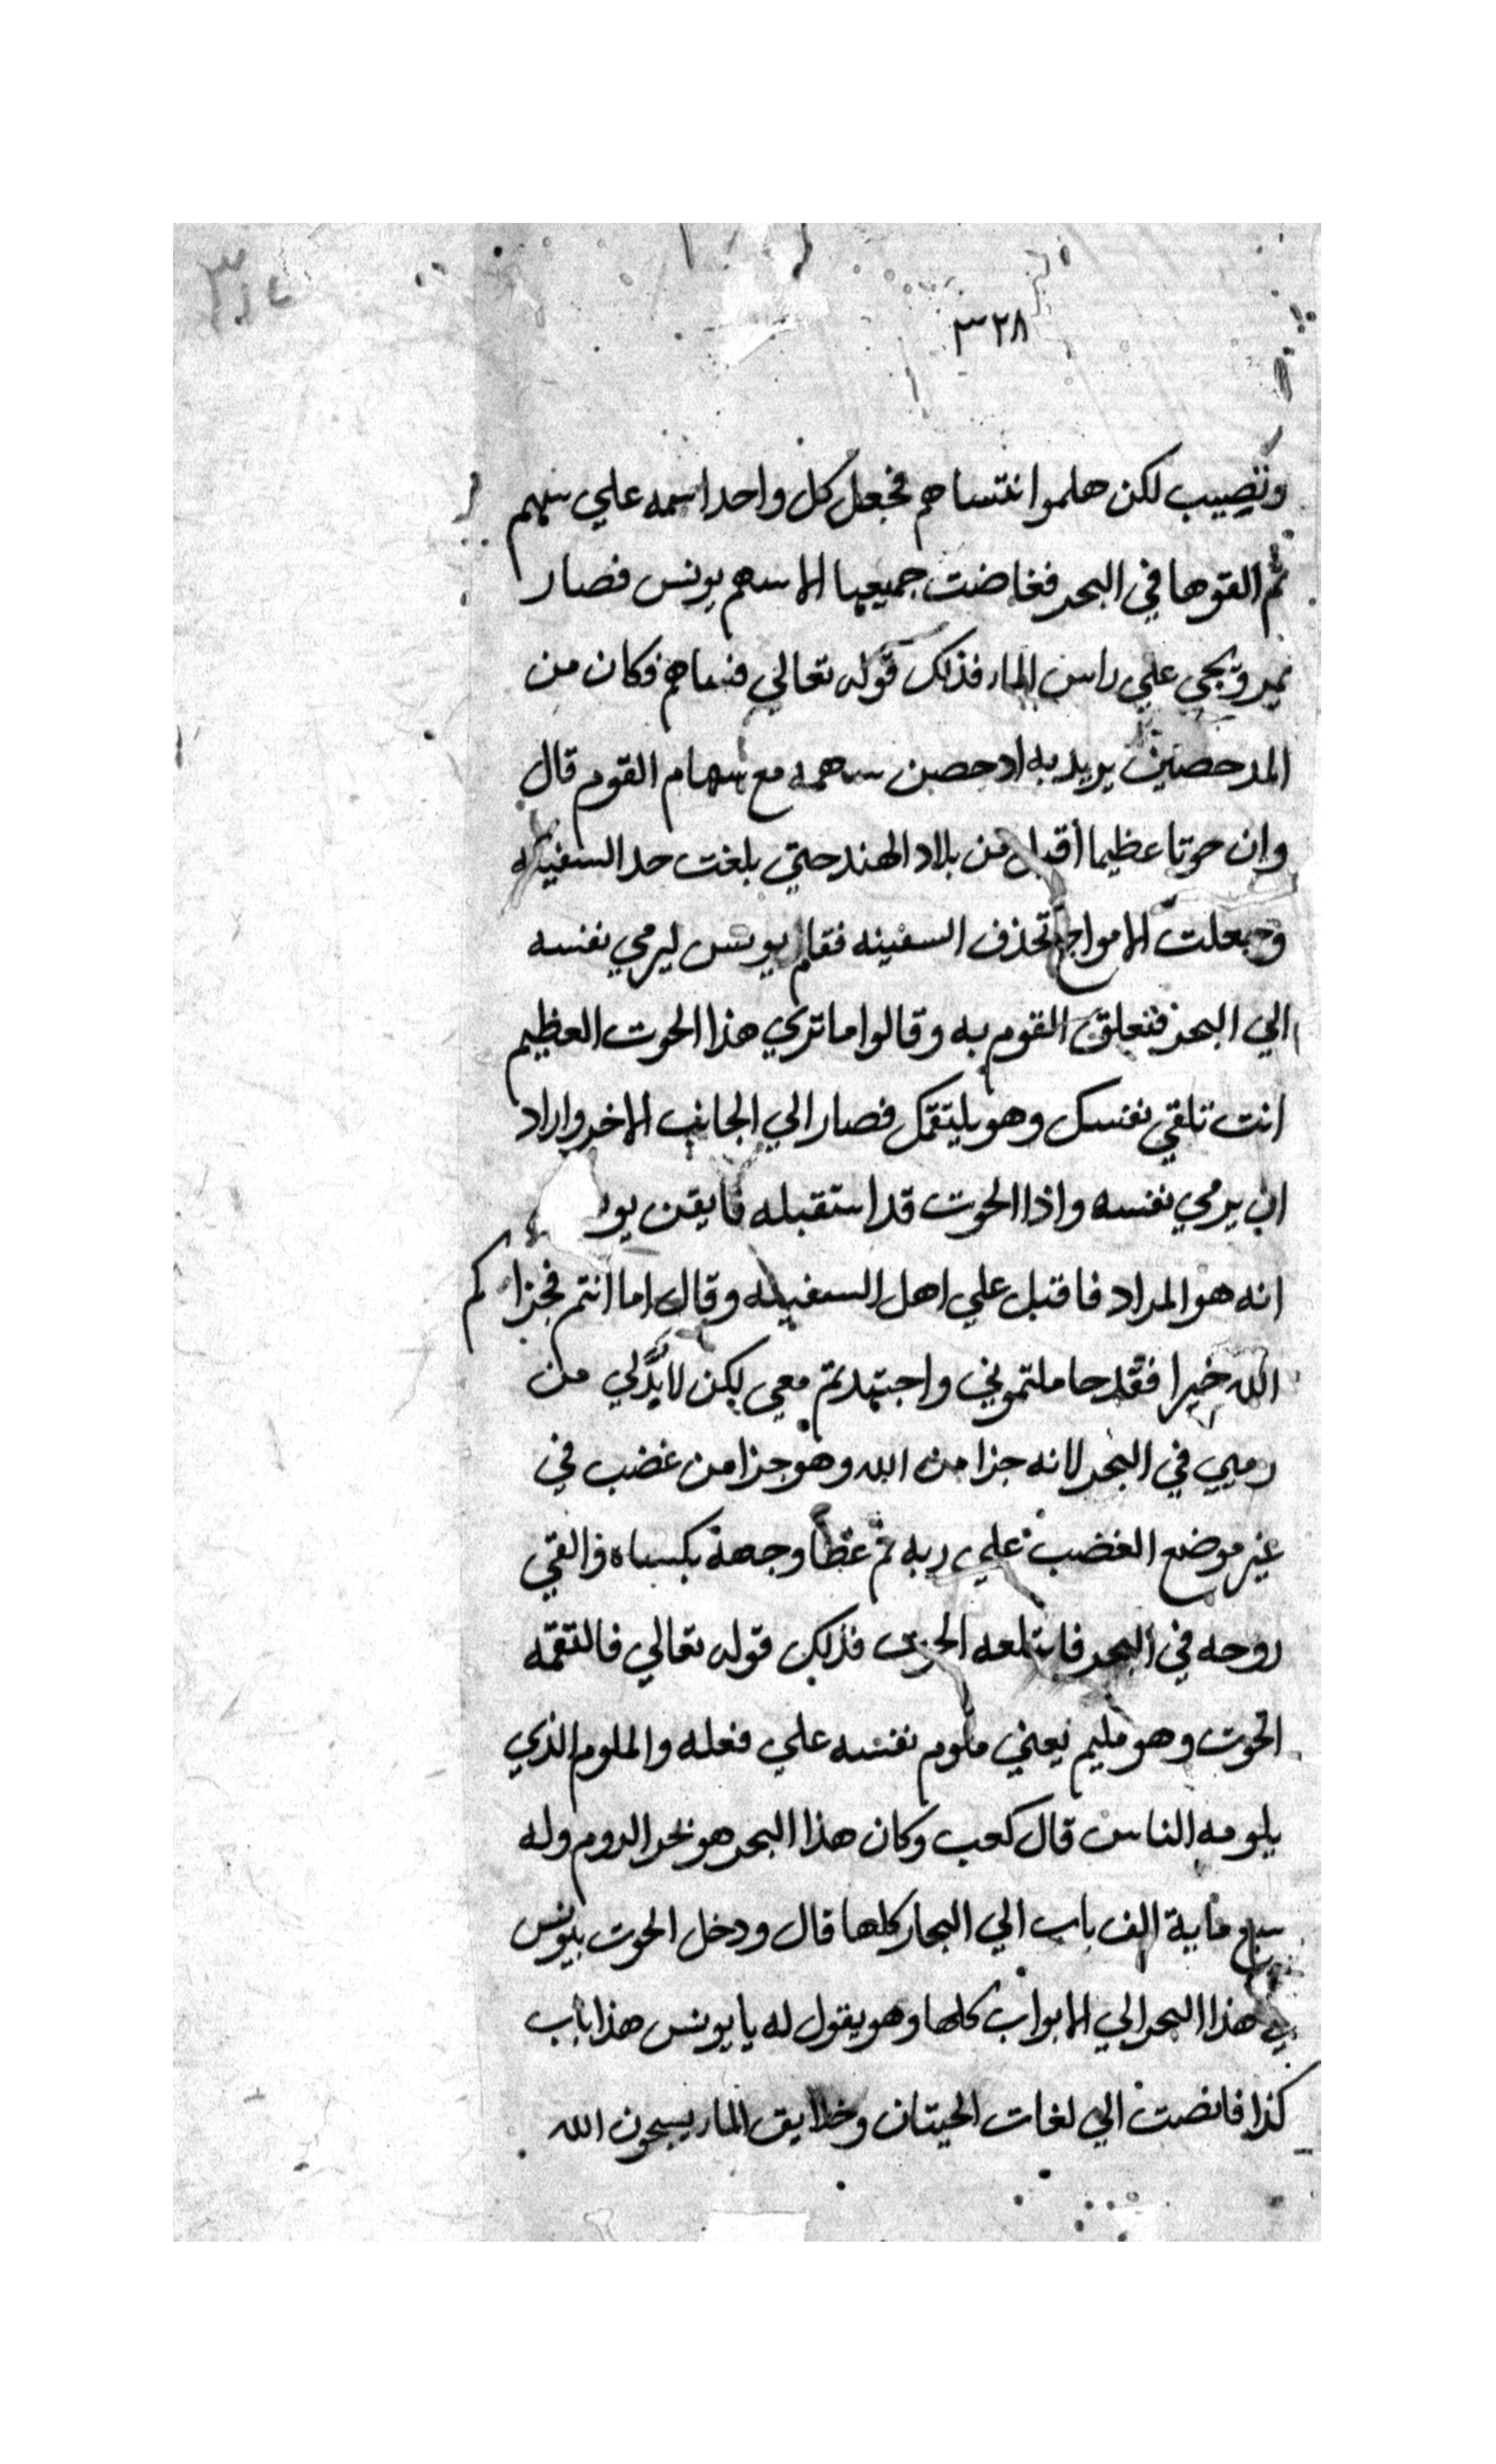 ٣٢٨
ونصيب لكن هلموا نتساهم فجعل كل واحد اسمه علي سهم
ثم القوها في البحر فغاضت جميعها الا سهم يونس فصار
يمر ويجي علي راس الماء فذلك قوله تعالي فساهم فكان من
المدحضين يريد به ادحضن سهمه مع سهام القوم قال
وان حوتا عظيما أقبل من بلاد الهند حتي بلغت حد السفينه
وجعلت الامواج تحذف السفينه فقام يونس ليرمي نفسه
الي البحر فتعلق القوم به وقالوا ما تري هذا الحوت العظيم
انت تلقي نفسك وهو يلتقمك فصار الي الجانب الاخر واراد
ان يرمي نفسه واذا الحوت قد استقبله فايقن يو
انه هو المراد فاقبل علي اهل السفينه وقال اما انتم فجزاكم
الله خيرا فقد حاملتموني واجتهدتم معي لكن لابدَّ لي من
رميي في البحر لانه جزا من الله وهو جزا من غضب في
غير موضع الغضب علي ربه ثم غطا وجهه بكساه والقي
روحه في البحر فابتلعه الحوت فذلك قوله تعالي فالتقمه
الحوت وهو مليم يعني ملوم نفسه علي فعله والملوم الذي
يلومه الناس قال كعب وكان هذا البحر هو بحر الروم وله
سبع ماية الف باب الي البحار كلها قال ودخل الحوت بيونس
في هذا البحر الي الابواب كلها وهو يقول له يا يونس هذا باب
كذا فانصت الي لغات الحيتان وخلايق الماء يسبحون الله